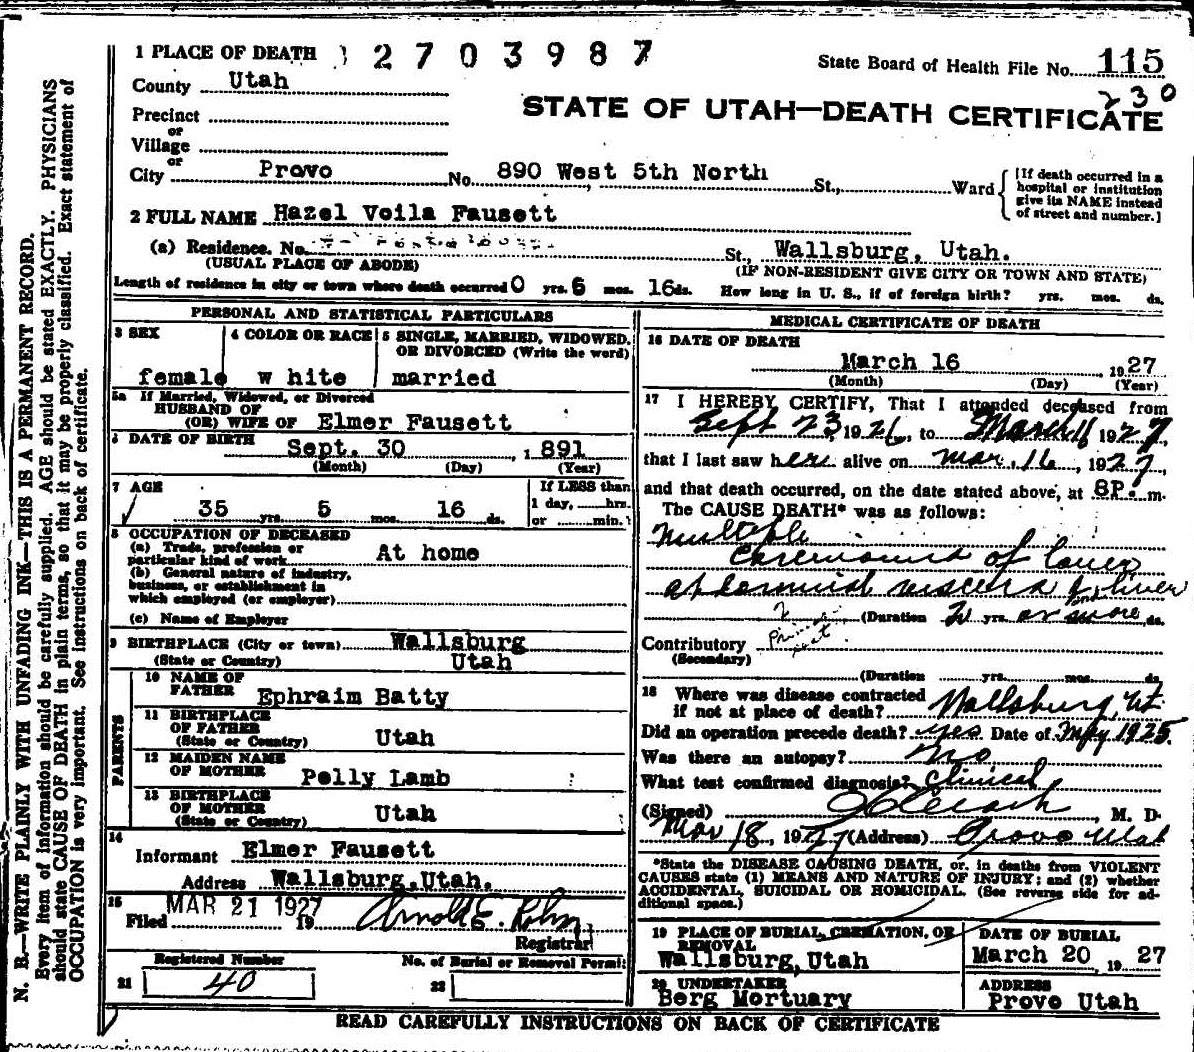 1 PLACE OF DEATH 2703987
State Board of Health File No. 115
230
County Utah
STATE OF UTAH—DEATH CERTIFICATE
Precinct
or
Village
or
City Provo No. 890 West 5th North St., Ward
[If death occurred in a
hospital or institution
give its NAME instead
of street and number.]
2 FULL NAME Hazel Voila Fausett
(a) Residence. No. St., Wallsburg, Utah.
(USUAL PLACE OF ABODE) (IF NON-RESIDENT GIVE CITY OR TOWN AND STATE)
Length of residence in city or town where death occurred 0 yrs. 6 mos. 16 ds. How long in U. S., if of foreign birth? yrs. mos. ds.
PERSONAL AND STATISTICAL PARTICULARS
3 SEX 4 COLOR OR RACE 5 SINGLE, MARRIED, WIDOWED,
OR DIVORCED (Write the word)
female w hite married
5a If Married, Widowed, or Divorced
HUSBAND OF
(OR) WIFE OF Elmer Fausett
6 DATE OF BIRTH Sept. 30, 1891
(Month) (Day) (Year)
7 AGE If LESS than
1 day, hrs.
35 yrs. 5 mos. 16 ds. or min.
8 OCCUPATION OF DECEASED
(a) Trade, profession or
particular kind of work At home
(b) General nature of industry,
business, or establishment in
which employed (or employer)
(c) Name of Employer
9 BIRTHPLACE (City or town) Wallsburg
(State or Country) Utah
PARENTS
10 NAME OF
FATHER Ephraim Batty
11 BIRTHPLACE
OF FATHER
(State or Country) Utah
12 MAIDEN NAME
OF MOTHER Polly Lamb
13 BIRTHPLACE
OF MOTHER
(State or Country) Utah
14
Informant Elmer Fausett
Address Wallsburg, Utah.
15 MAR 21 1927
Filed 19 Arnold E.
Registrar
Registered Number No. of Burial or Removal Permit
21 40 22
MEDICAL CERTIFICATE OF DEATH
16 DATE OF DEATH
March 16, 1927
(Month) (Day) (Year)
17 I HEREBY CERTIFY, That I attended deceased from
Sept 23, 1926, to March 16 1927
that I last saw her alive on Mar. 16, 1927,
and that death occurred, on the date stated above, at 8P. m.
The CAUSE DEATH* was as follows:
Multiple
Carcinoma of lower
abdominal viscera & liver
(Duration 2 yrs. or more ds.
Contributory
(Secondary)
(Duration yrs. mos. ds.
18 Where was disease contracted
if not at place of death? Wallsburg, Ut.
Did an operation precede death? yes Date of May 1925.
Was there an autopsy? no
What test confirmed diagnosis? Clinical
(Signed) M. D.
Mar 18, 1927 (Address) Provo Utah
*State the DISEASE CAUSING DEATH, or, in deaths from VIOLENT
CAUSES state (1) MEANS AND NATURE OF INJURY; and (2) whether
ACCIDENTAL, SUICIDAL OR HOMICIDAL. (See reverse side for ad-
ditional space.)
19 PLACE OF BURIAL, CREMATION, OR
REMOVAL
Wallsburg, Utah
DATE OF BURIAL
March 20, 1927
20 UNDERTAKER
Berg Mortuary
ADDRESS
Provo Utah
READ CAREFULLY INSTRUCTIONS ON BACK OF CERTIFICATE
N. B.—WRITE PLAINLY WITH UNFADING INK—THIS IS A PERMANENT RECORD.
Every item of information should be carefully supplied. AGE should be stated EXACTLY. PHYSICIANS
should state CAUSE OF DEATH in plain terms, so that it may be properly classified. Exact statement of
OCCUPATION is very important. See instructions on back of certificate.